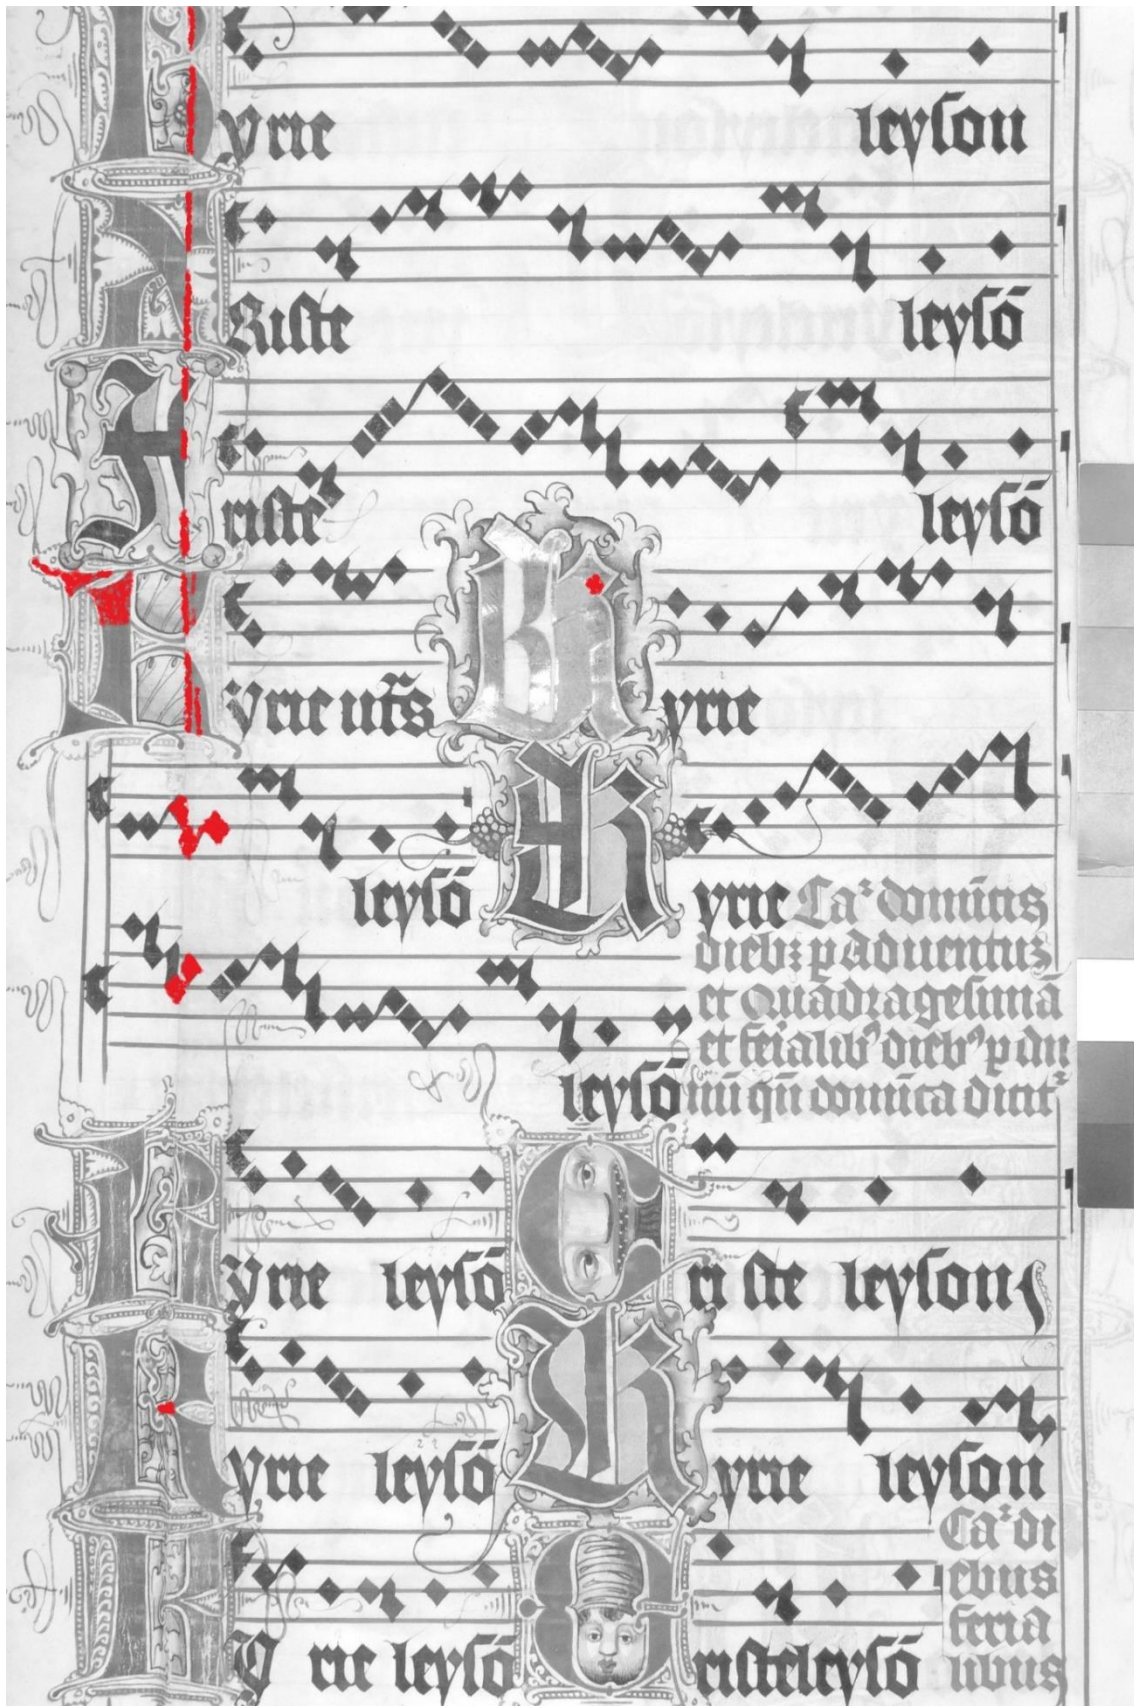 Kyrie leyson
Kriste leysō
Xriste leysō
Kyrie ut sᵃ Kyrie
leysō Kyrie Caꝫ dominicis
diebꝫ p aduentuꝫ
et Quadragesimā
et ferialibꝰ diebꝰ p an
leysō nū qn̄ domīca dicit᷑
Kyrie leysō Criste leyson
Kyrie leysō Kyrie leyson
Caꝫ di
ebus
feria
Kyrie leysō Cristeleysō libus